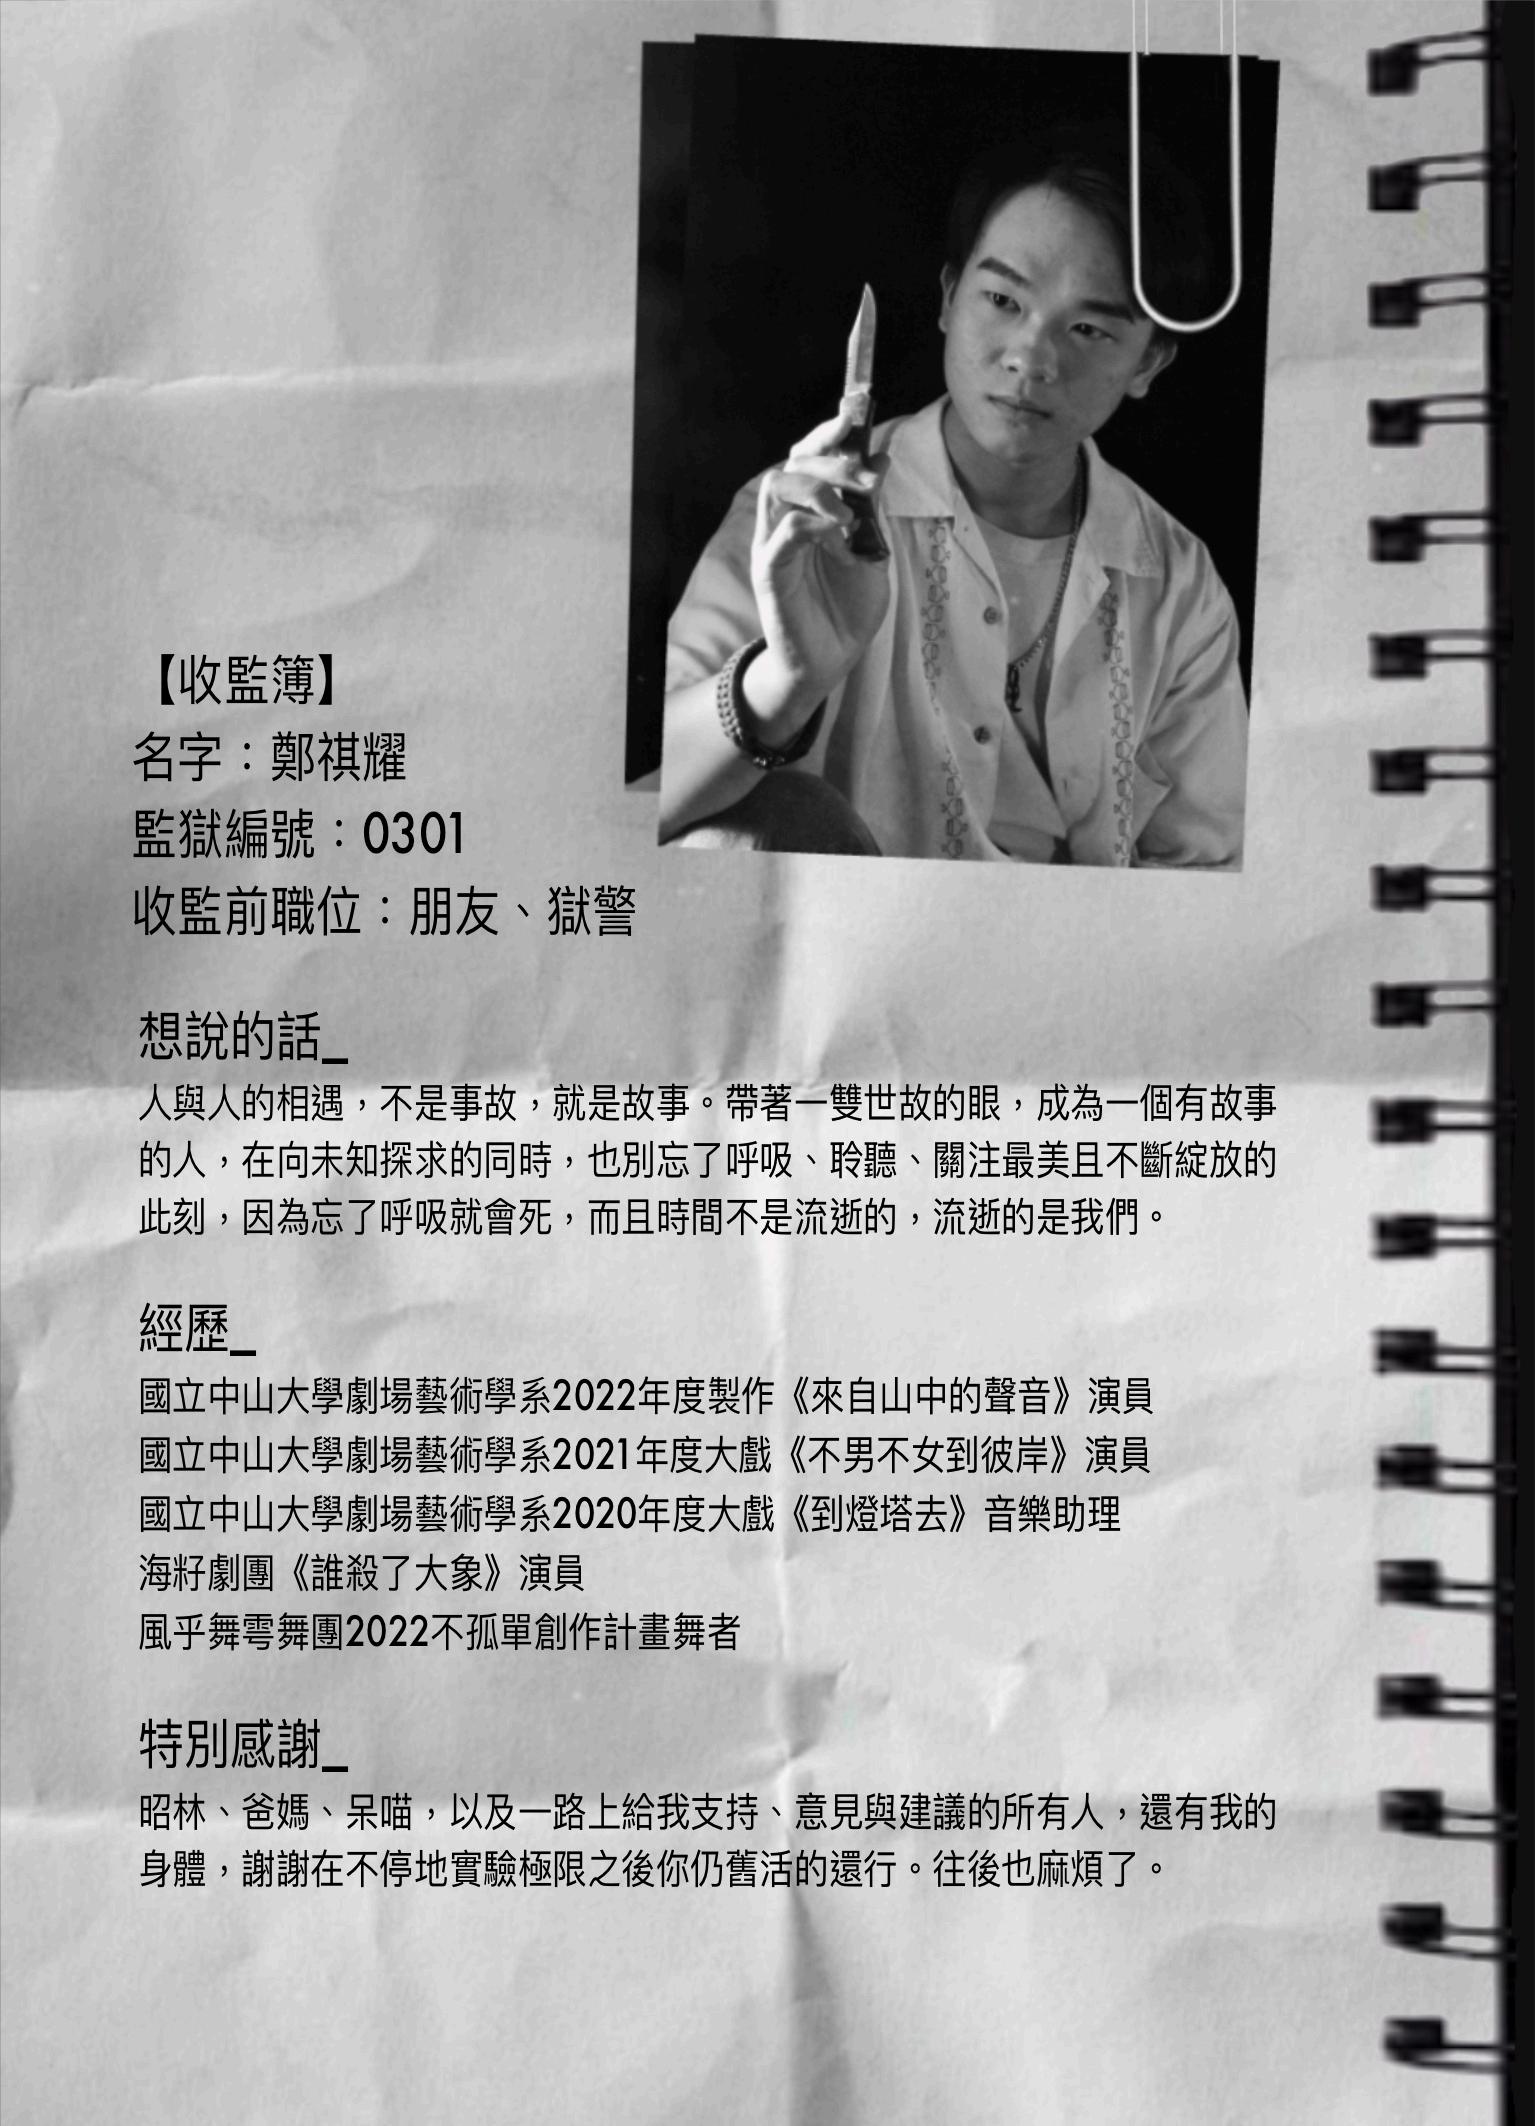 【收監簿】
名字：鄭祺耀
監獄編號：0301
收監前職位：朋友、獄警
想說的話_
人與人的相遇，不是事故，就是故事。帶著一雙世故的眼，成為一個有故事
的人，在向未知探求的同時，也別忘了呼吸、聆聽、關注最美且不斷綻放的
此刻，因為忘了呼吸就會死，而且時間不是流逝的，流逝的是我們。
經歷_
國立中山大學劇場藝術學系2022年度製作《來自山中的聲音》演員
國立中山大學劇場藝術學系2021年度大戲《不男不女到彼岸》演員
國立中山大學劇場藝術學系2020年度大戲《到燈塔去》音樂助理
海籽劇團《誰殺了大象》演員
風乎舞雩舞團2022不孤單創作計畫舞者
特別感謝_
昭林、爸媽、呆喵，以及一路上給我支持、意見與建議的所有人，還有我的
身體，謝謝在不停地實驗極限之後你仍舊活的還行。往後也麻煩了。